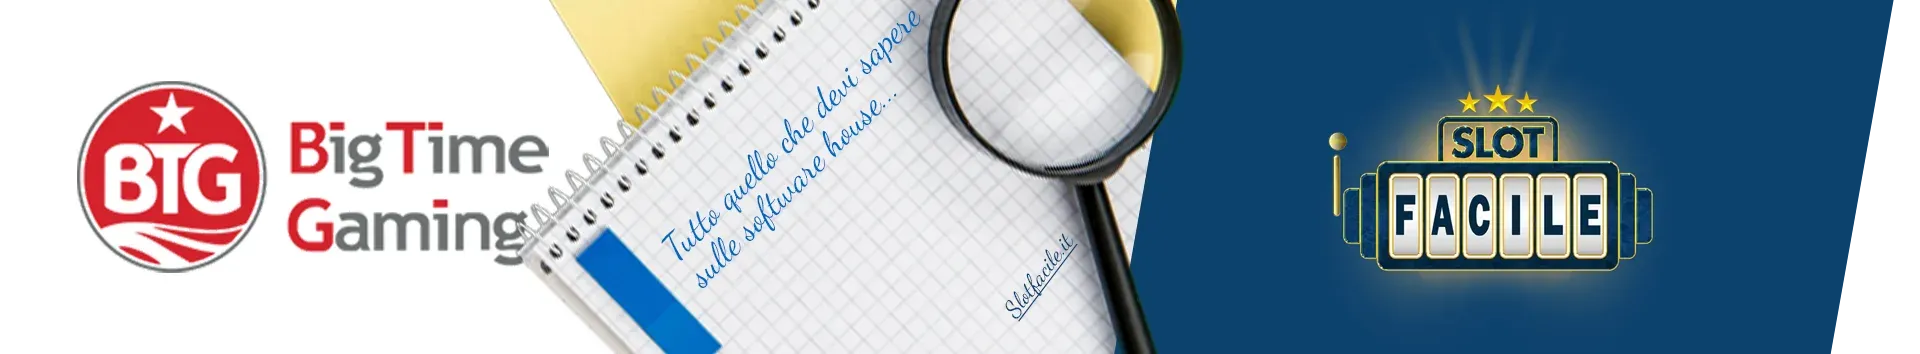 BTG
Big Time
Gaming
Tutto quello che devi sapere
sulle software house...
Slotfacile.it
SLOT
FACILE